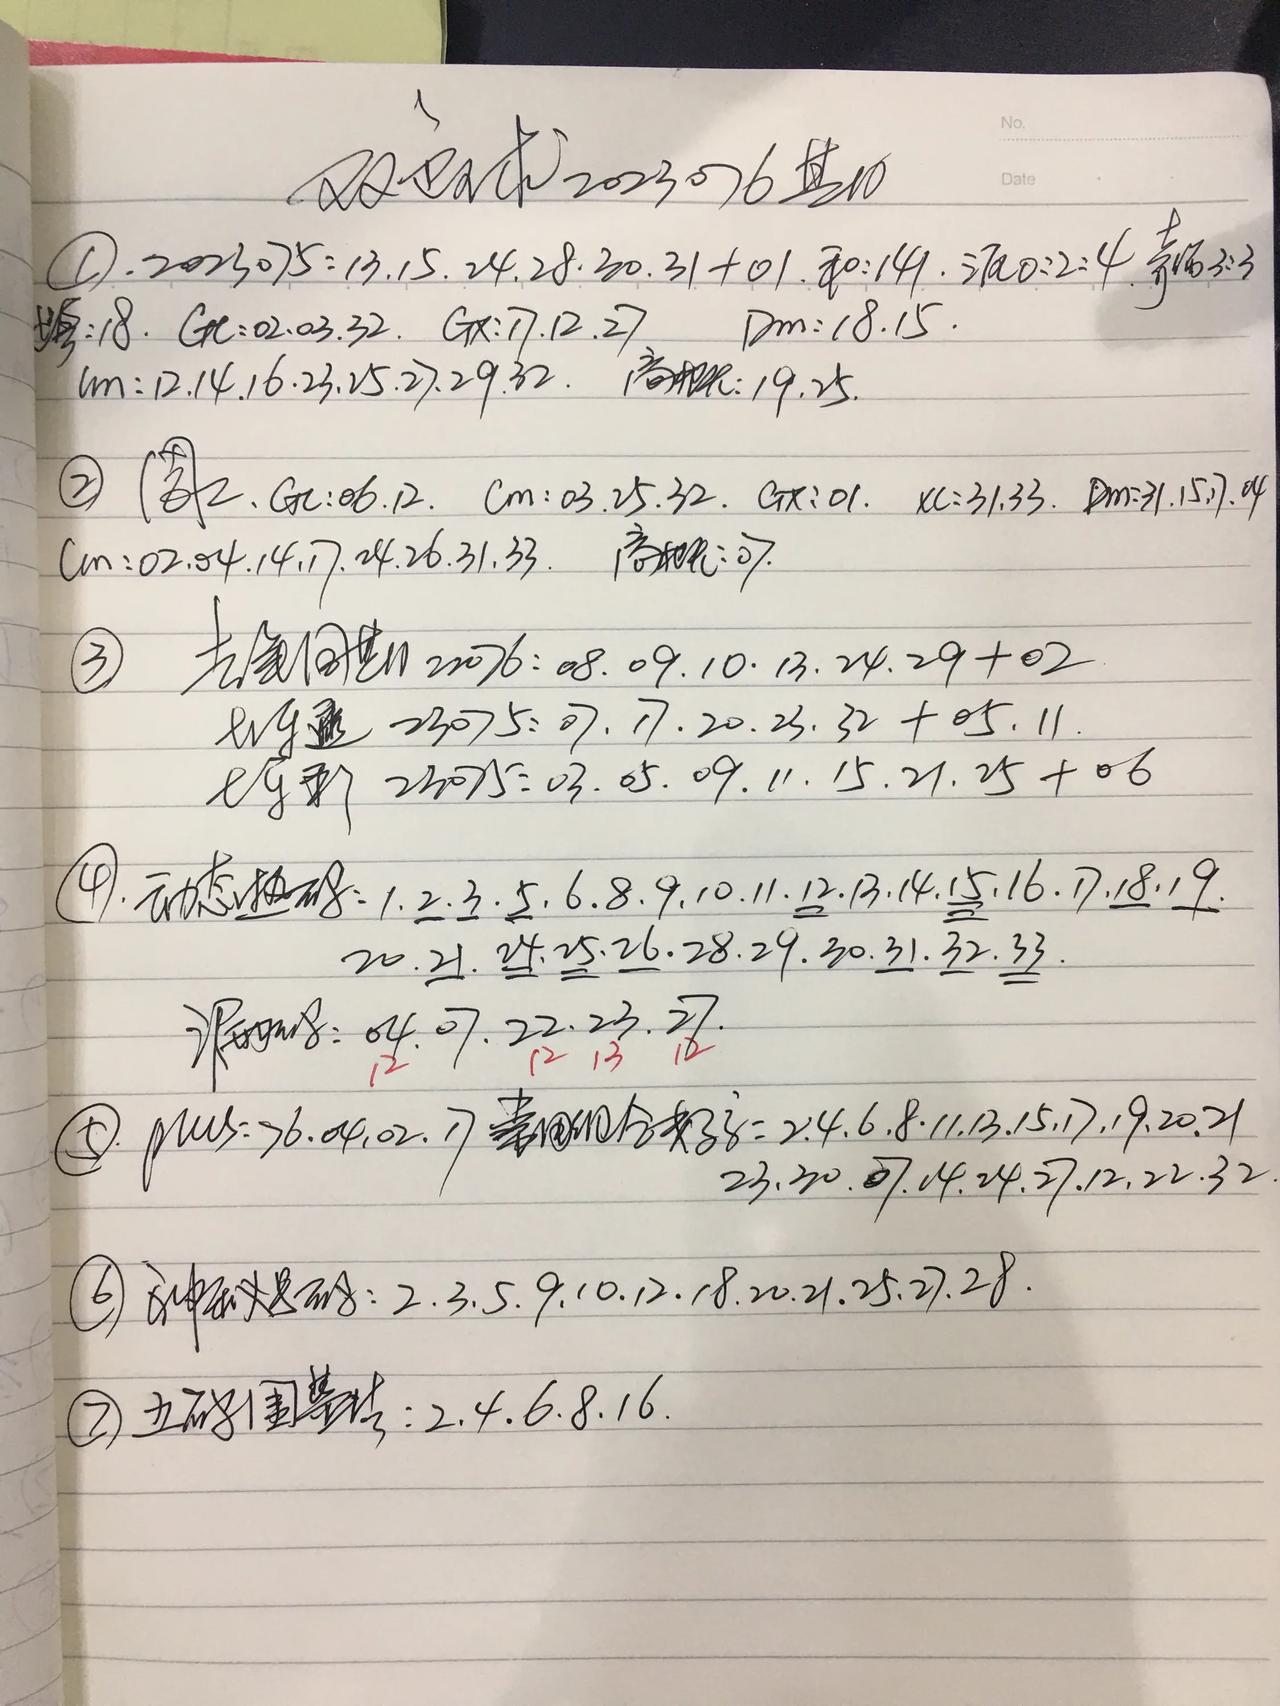 双色球2023076基10
No.
Date
①.2023075:13.15.24.28.30.31+01.和:141.三区0:2:4.奇偶3:3
:18. Gc:02.03.32. Gx:17.12.27 Dm:18.15.
Cm:12.14.16.23.25.27.29.32. 高概:19.25.
② 2. Gc:06.12. Cm:03.25.32. Gx:01. xc:31.33. Dm:31.15.17.04
Cm:02.04.14.17.24.26.31.33. 高概:07.
③ 去年同期 22076:08.09.10.13.24.29+02
23075:07.17.20.23.32+05.11.
23075:03.05.09.11.15.21.25+06
④.动态热码:1.2.3.5.6.8.9.10.11.12.13.14.15.16.17.18.19.
20.21.24.25.26.28.29.30.31.32.33.
:04.07.22.23.27.
12 12 13 12
⑤.plus:76.04.02.17 组合:2.4.6.8.11.13.15.17.19.20.21
23.30.07.14.24.27.12.22.32.
⑥ 码:2.3.5.9.10.12.18.20.21.25.27.28.
⑦ 五码围:2.4.6.8.16.